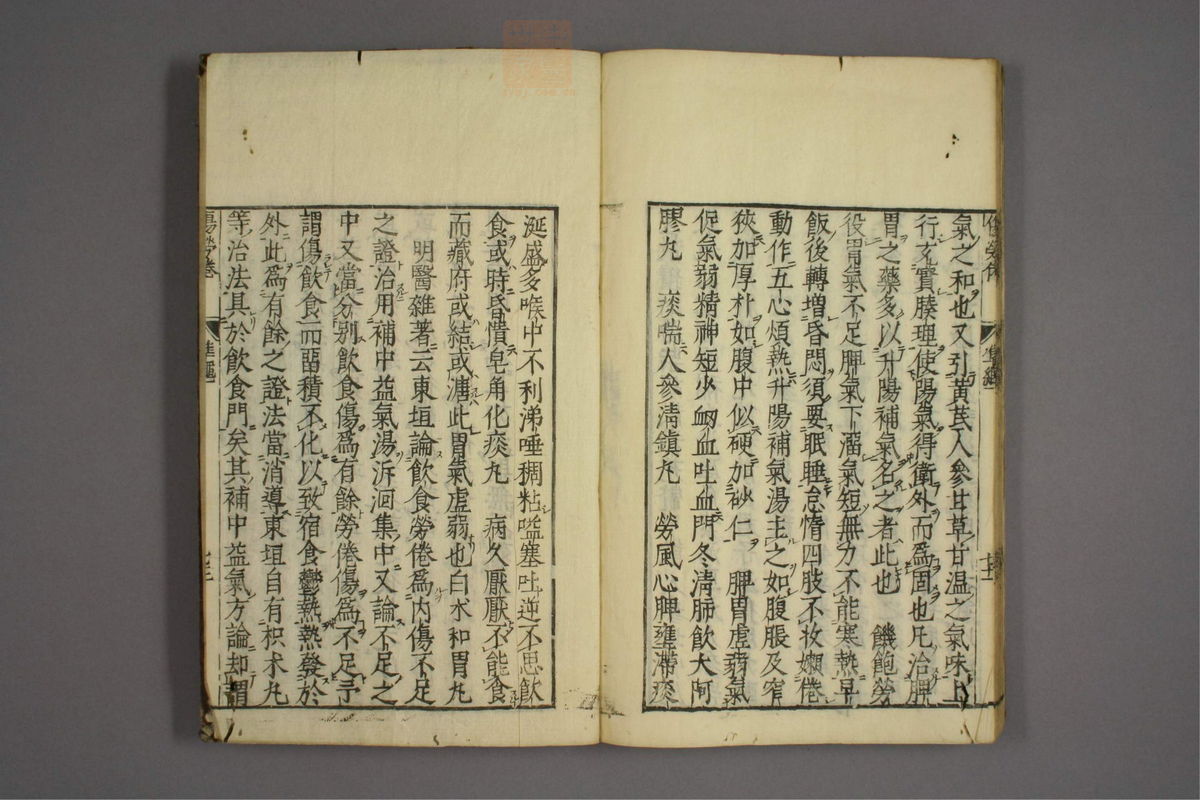 氣之和也又引黃芪人參甘草甘温之氣味上
行又實腠理使陽氣得衛外而爲固也凡治脾
胃之藥多以升陽補氣名之者此也 饑飽勞
役胃氣不足脾氣下溜氣短無力不能寒熱早
飯後轉增昏悶須要眠睡怠惰四肢不收嬾倦
動作五心煩熱升陽補氣湯主之如腹脹及窄
狹加厚朴如腹中似硬加砂仁 脾胃虛弱氣
促氣弱精神短少衂血吐血門冬清肺飲大阿
膠丸 痰喘人參清鎮丸 勞風心脾壅滯痰
涎盛多喉中不利涕唾稠粘嗌塞吐逆不思飲
食或時昏憒皂角化痰丸 病久厭厭不能食
而藏府或結或溏此胃氣虛弱也白朮和胃丸
明醫雜著云東垣論飲食勞倦爲内傷不足
之證治用補中益氣湯泝洄集中又論不足之
中又當分别飲食傷爲有餘勞倦傷爲不足予
謂傷飲食而畱積不化以致宿食鬱熱熱發於
外此爲有餘之證法當消導東垣自有枳朮丸
等治法具於飲食門矣其補中益氣方論却謂